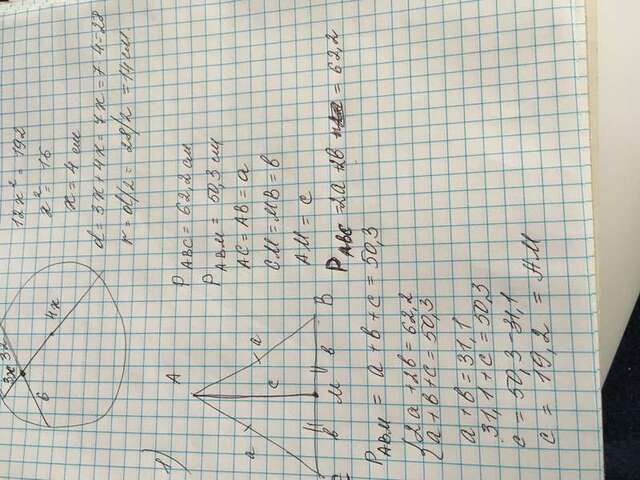 12x² = 192
x² = 16
x = 4 см
d = 3x + 4x = 7x = 7·4 = 28
r = d/2 = 28/2 = 14 см
3x
32
4x
6
1)
A
a
a
c
b
M
b
B
P ABC = 62,2 см
P ABM = 50,3 см
AC = AB = a
CM = MB = b
AM = c
P ABC = 2a + 2b = 62,2
P ABM = a + b + c = 50,3
{2a + 2b = 62,2
a + b + c = 50,3
a + b = 31,1
31,1 + c = 50,3
c = 50,3 - 31,1
c = 19,2 = AM